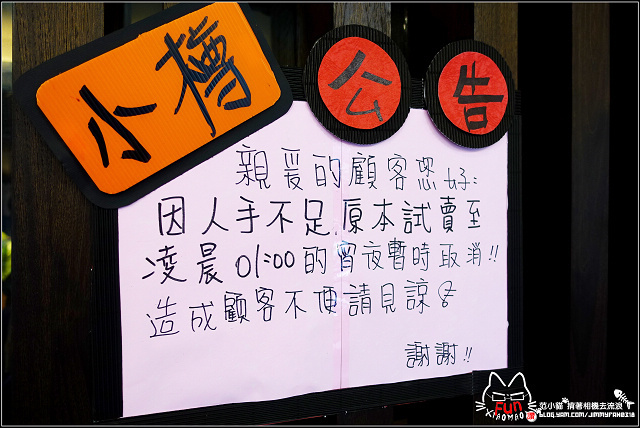 小樽
公告
親愛的顧客您好:
因人手不足,原本試賣至
凌晨01:00的宵夜暫時取消!!
造成顧客不便請見諒
謝謝!!
FUN
XIAOMAO
范小貓 揹著相機去流浪
BLOG.YAM.COM/JIMMYFAN0218